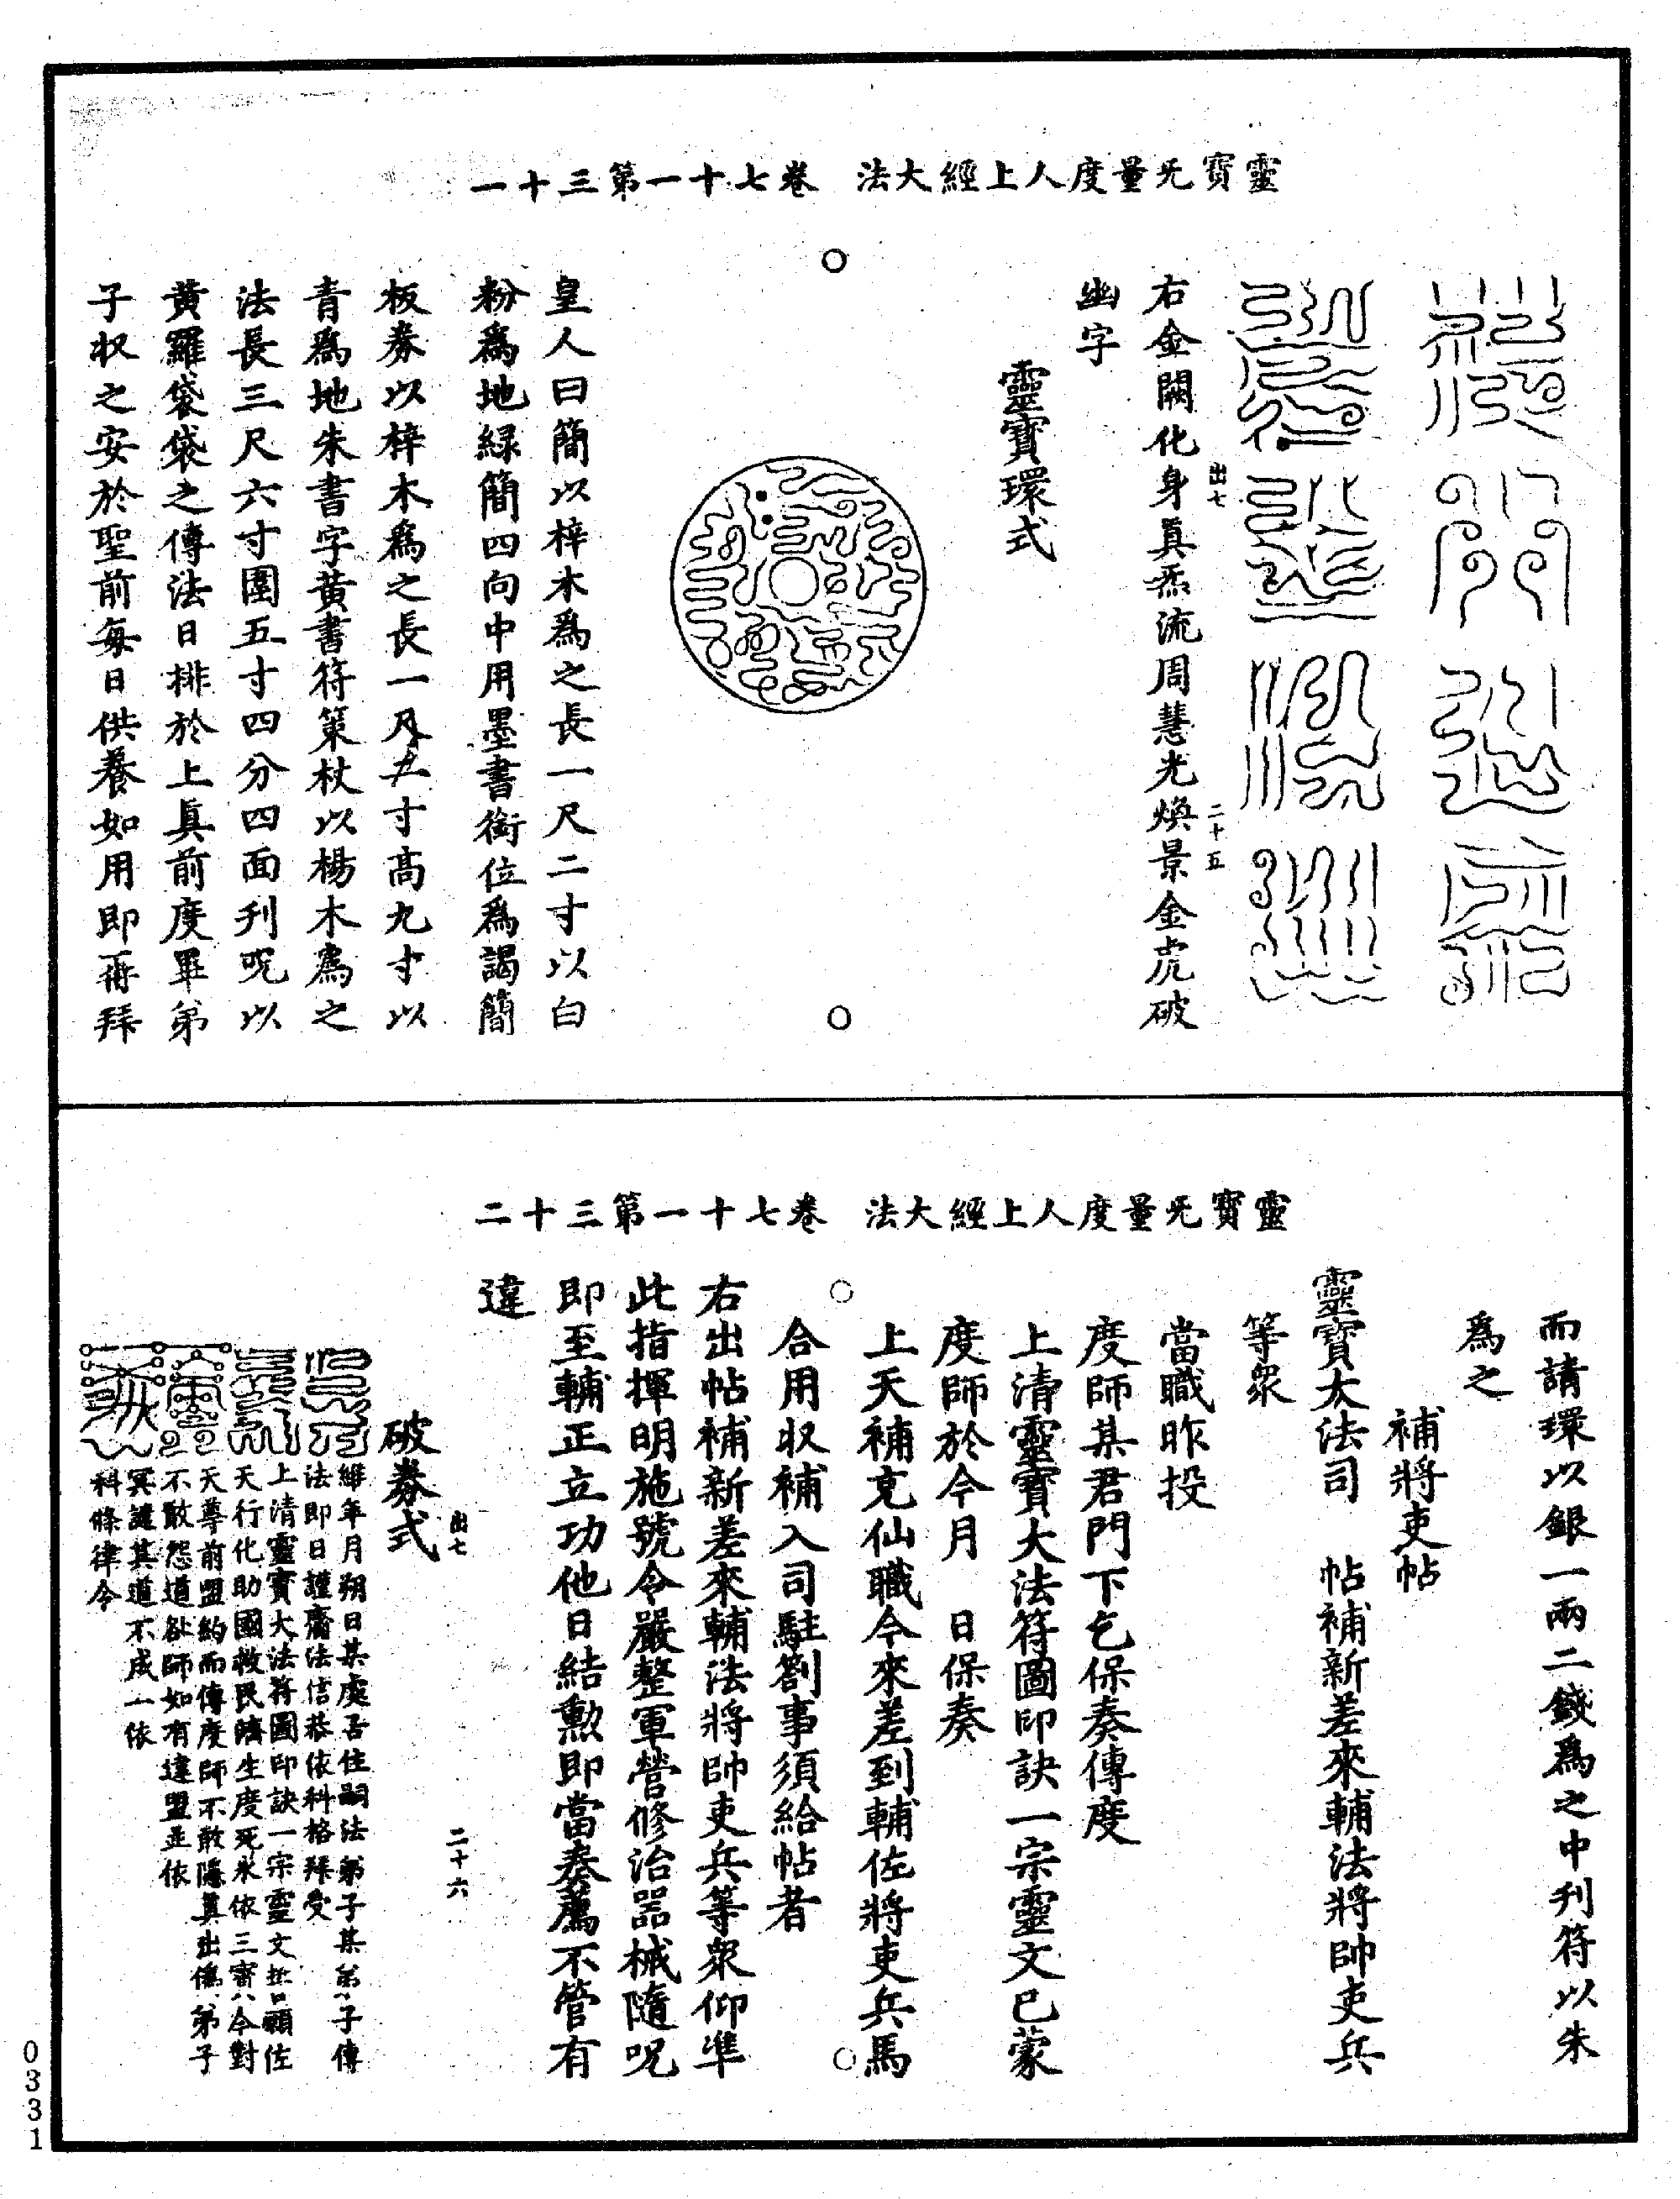 靈寶无量度人上經大法　卷七十一第三十一
右金闕化身真炁流周慧光煥景金虎破
幽字
出七
二十五
靈寶環式
皇人曰簡以梓木爲之長一尺二寸以白
粉爲地緑簡四向中用墨書銜位爲謁簡
板券以梓木爲之長一尺五寸高九寸以
青爲地朱書字黄書符策杖以楊木爲之
法長三尺六寸圍五寸四分四面刋呪以
黄羅袋袋之傳法日排於上真前度畢弟
子収之安於聖前每日供養如用即再拜
靈寶无量度人上經大法　卷七十一第三十二
而請環以銀一兩二錢爲之中刋符以朱
爲之
補將吏帖
靈寶大法司　帖補新差來輔法將帥吏兵
等衆
當職昨投
度師某君門下乞保奏傳度
上清靈寶大法符圖印訣一宗靈文已蒙
度師於今月　日保奏
上天補充仙職今來差到輔佐將吏兵馬
合用収補入司駐劄事須給帖者
右出帖補新差來輔法將帥吏兵等衆仰準
此指揮明施號令嚴整軍營修治器械隨呪
即至輔正立功他日結勳即當奏薦不管有
違
出七
二十六
破券式
維年月朔日某處居住嗣法弟子某弟子傳
法即日謹齎法信恭依科格拜受
上清靈寶大法符圖印訣一宗靈文誓願佐
天行化助國救民濟生度死永依三寶今對
天尊前盟約而傳度師不敢隱真出僞弟子
不敢怨道咎師如有違盟並依
冥譴其道不成一依
科條律令
0331